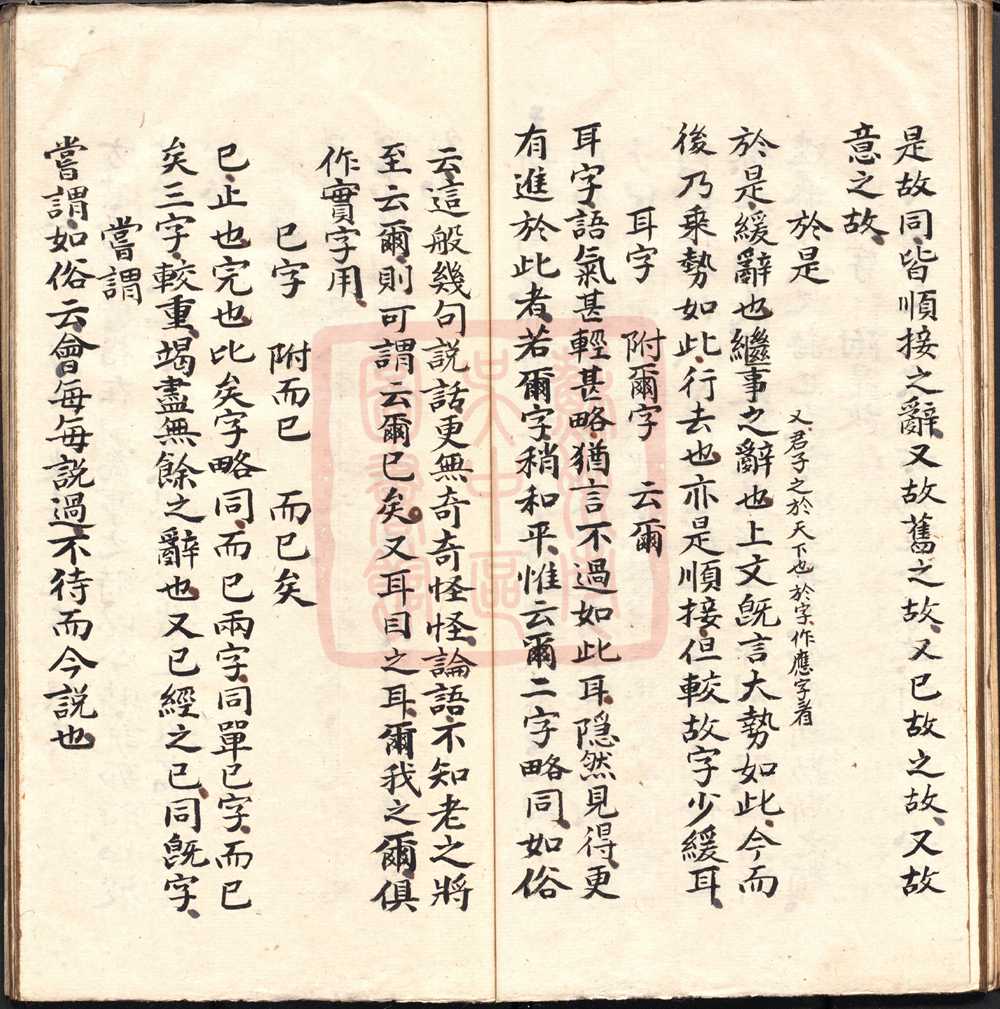 是故同、皆順接之辭、又故舊之故、又已故之故、又故
意之故、
於是
又、君子之於天下也、於字、作應字看
於是、緩辭也、繼事之辭也、上文旣言大勢如此、今而
後乃乘勢如此、行去也、亦是順接、但較故字少緩耳、
耳字 附爾字 云爾
耳字、語氣甚輕甚略、猶言不過如此耳、隱然見得、更
有進於此者、若爾字、稍和平、惟云爾二字略同、如俗
云、這般幾句說話、更無奇奇怪怪、論語、不知老之將
至云爾、則可謂云爾已矣、又耳目之耳、爾我之爾、俱
作實字用、
已字 附而已 而已矣
已、止也、完也、比矣字略同、而已兩字、同單已字、而已
矣三字、較重、竭盡無餘之辭也、又已經之已、同旣字、
嘗謂
嘗謂、如俗云、會每每說過、不待而今說也、